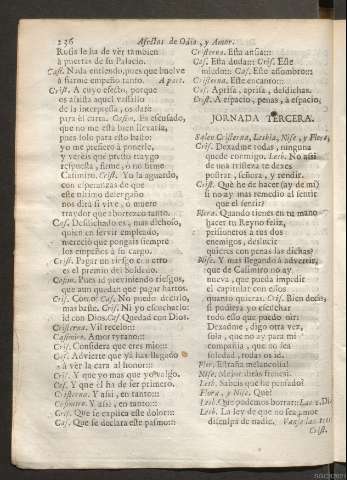 236 Afectos de Odio, y Amor.
Rusia le ha de vèr tambien
à puertas de su Palacio.
Cas. Nada entiendo, pues que buelve
à firme empeño tanto. A part.
Crist. A cuyo efecto, porque
es asista aquel vassallo
de la interpresa, os date
para el carta. Casim. Es escusado,
que no me està bien llevarla,
pues solo para esto basto:
yo me prefiero à ponerle,
y vereis que presto traygo
respuesta, firme, ò no firme
Casimiro. Crist. Yo la aguardo,
con esperanza de que
este ultimo desengaño
nos dirà si vive, ò muere
traydor que aborrezco tanto.
Cas. Desdichado es, mas dichoso,
quien en servir empleado,
mereciò que pongais siempre
los empeños à su cargo.
Crist. Pagar un riesgo con otro
es el premio del Soldado.
Casim. Pues id previniendo riesgos,
que aun quedais que pagar hartos.
Crist. Como? Cas. No puedo decirlo,
mas baste. Crist. Ni yo escucharlo:
id con Dios. Cas. Quedad con Dios.
Cristerna. Vil recelo::
Casimiro. Amor tyrano::
Crist. Considera que eres mio::
Cas. Advierte que yà has llegado
à vèr la cara al honor::
Crist. Y que yo mas que yo valgo.
Cas. Y que èl ha de ser primero.
Cristerna. Y assi, en tanto::
Casimiro. Y assi, en tanto::
Crist. Que se explica este dolor::
Cas. Que se declara este pasmo::
Cristerna. Esta ansia::
Cas. Esta duda:: Crist. Este
miedo:: Cas. Este assombro::
Cristerna. Este encanto::
Cas. Aprisa, aprisa, desdichas.
Crist. A espacio, penas, à espacio.
JORNADA TERCERA.
Salen Cristerna, Lesbia, Nise, y Flora.
Crist. Dexadme todas, ninguna
quede conmigo. Lesb. No assi
de una tristeza te dexes
postrar, señora, y rendir.
Crist. Què he de hacer (ay de mi)
si no ay mas remedio al sentir
que el sentir?
Flora. Quando tienes en tu mano
hacer tu Reyno feliz,
prisioneros a tus dos
enemigos, deslucir
quieres con penas las dichas?
Nise. Y mas llegando à advertir,
que de Casimiro no ay
nueva, que pueda impedir
el capitular con ellos
quanto quieras. Crist. Bien decis,
si pudiera yo escuchar
todo esso que puedo oir.
Dexadme, digo otra vez,
sola, que no ay para mi
compañia, que no sea
soledad, todas os id.
Flor. Estraña melancolia!
Nise. Mejor diràs frenesì.
Lesb. Sabeis que he pensado?
Flora, y Nise. Què?
Lesb. Que podemos borrar:: Las 2. Di.
Lesb. La ley de que no sea amor
disculpa de nadie. Vanse las tres.
Crist.